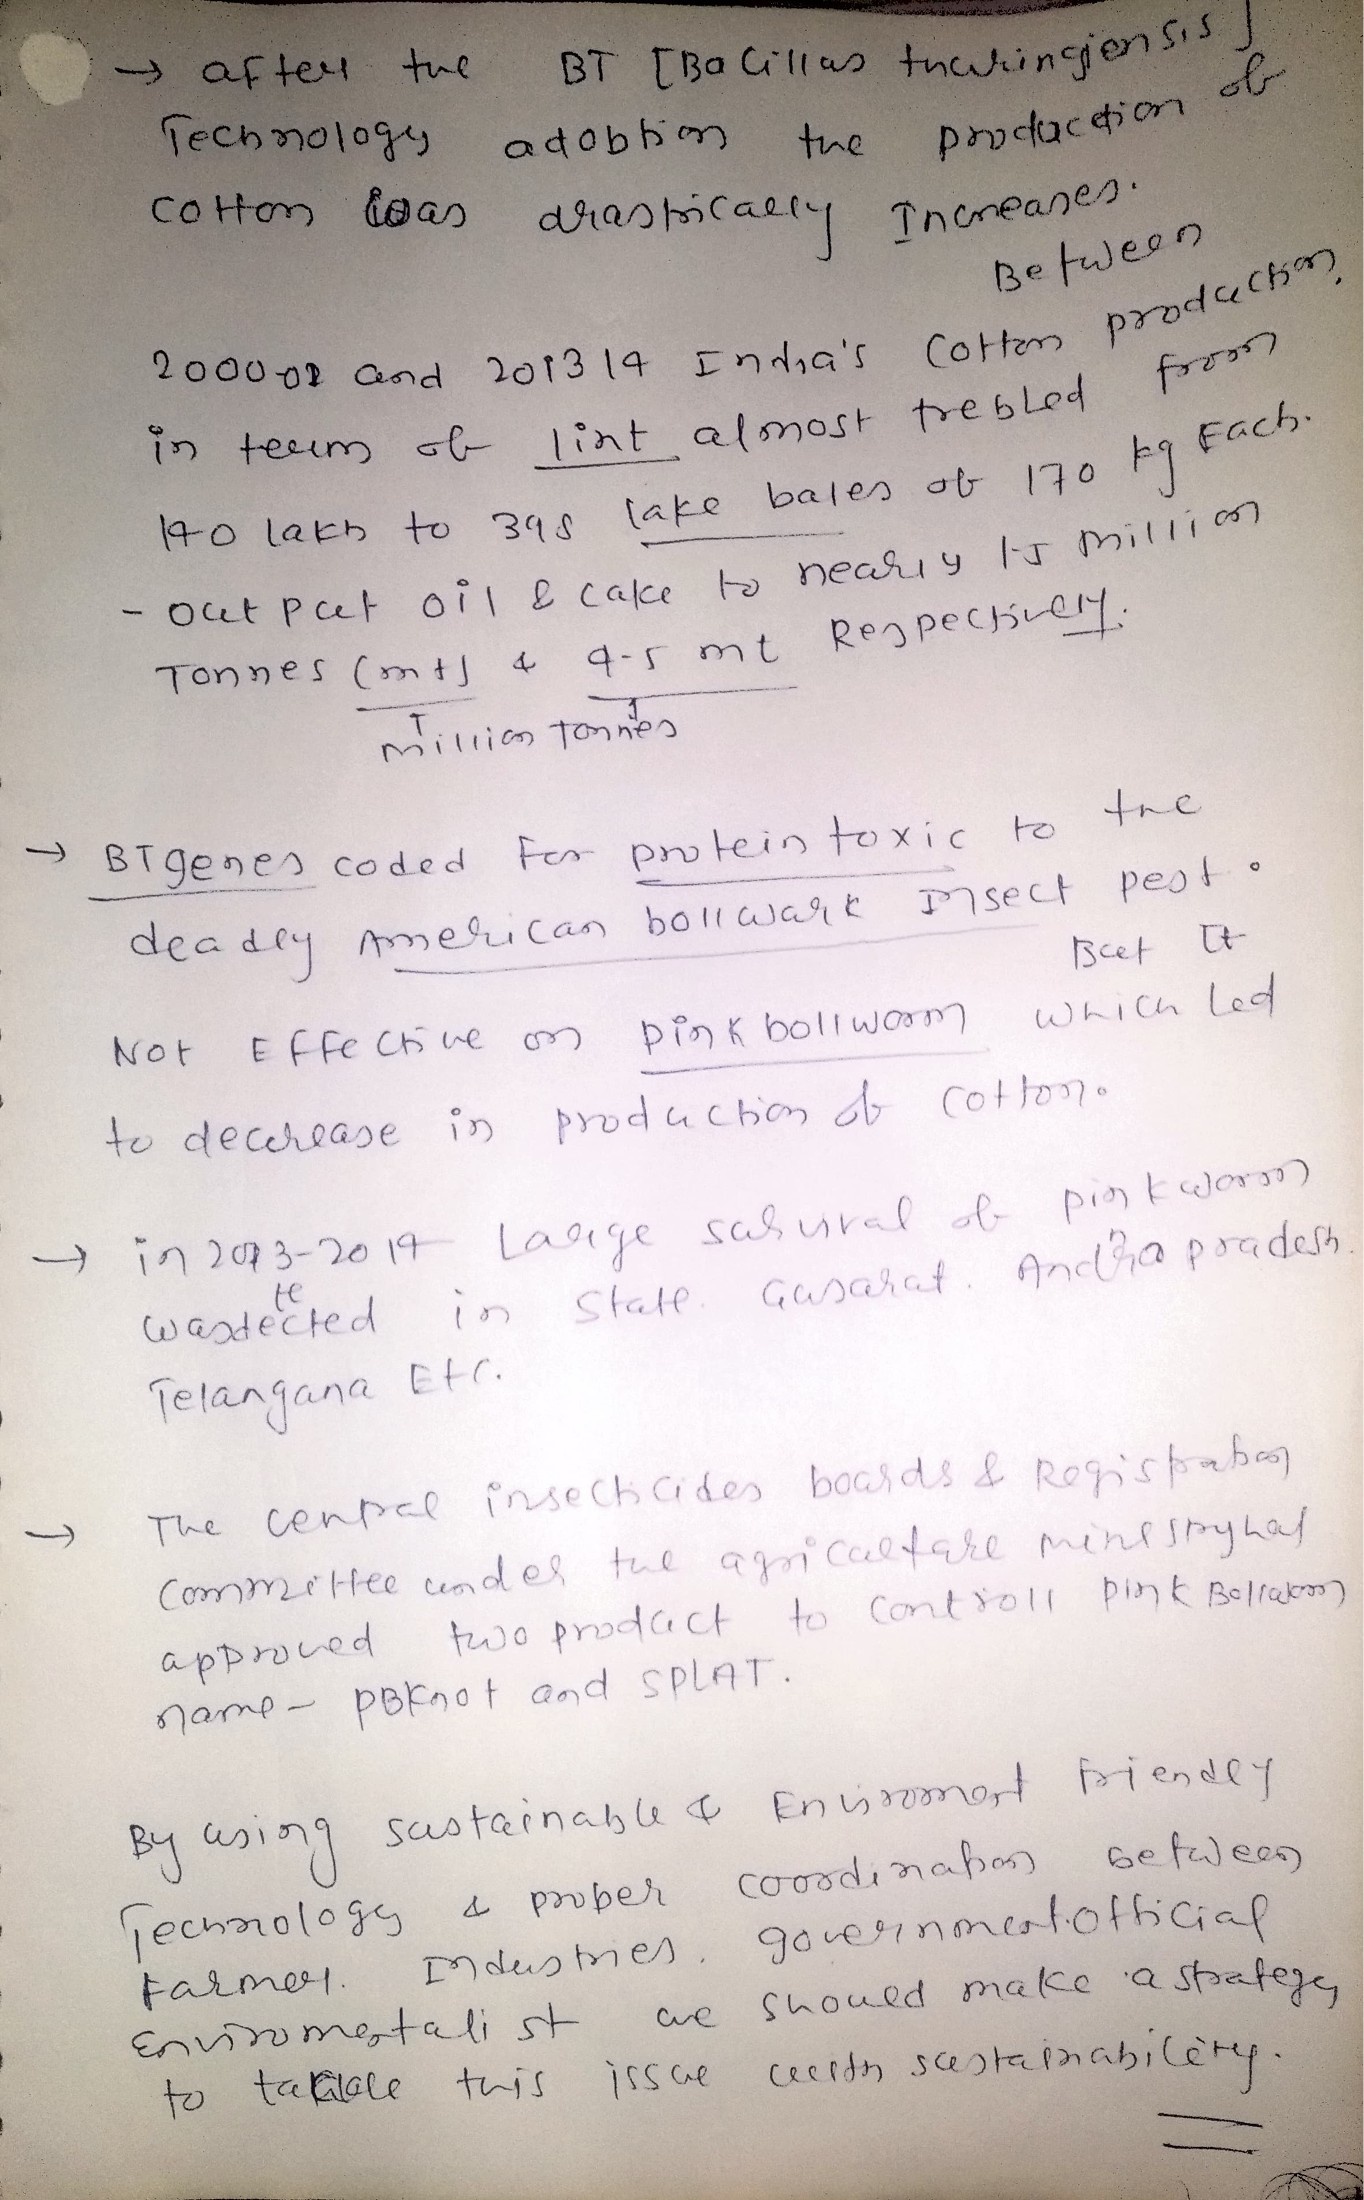 → after the BT [Bacillas thuringiensis]
Technology adobtion the production of
cotton was drastically Increases.
Between
2000-02 and 201314 India's Cotton production,
in term of lint almost trebled from
140 lakh to 398 lake bales of 170 kg Each.
- out put oil & cake to nearly 1.5 million
Tonnes (mt) & 4.5 mt Respectively.
million Tonnes
→ BT genes coded For protein toxic to the
deadly American bollwark Insect pest.
But It
Not Effective on pink bollworm which Led
to decrease in production of cotton.
→ in 2013-2014 Large survival of pink worm
te
wasdected in State. Gujarat. Andhra pradesh.
Telangana Etc.
→ The central insecticides boards & Registration
committee under the agriculture ministry has
approved two product to controll pink Bollworm
name - PBKnot and SPLAT.
By using sustainable & Enviroment friendly
Technology & proper coordination between
Farmer. Industries. government official
Enviromentalist we should make a strategy
to this issue with sustainability.